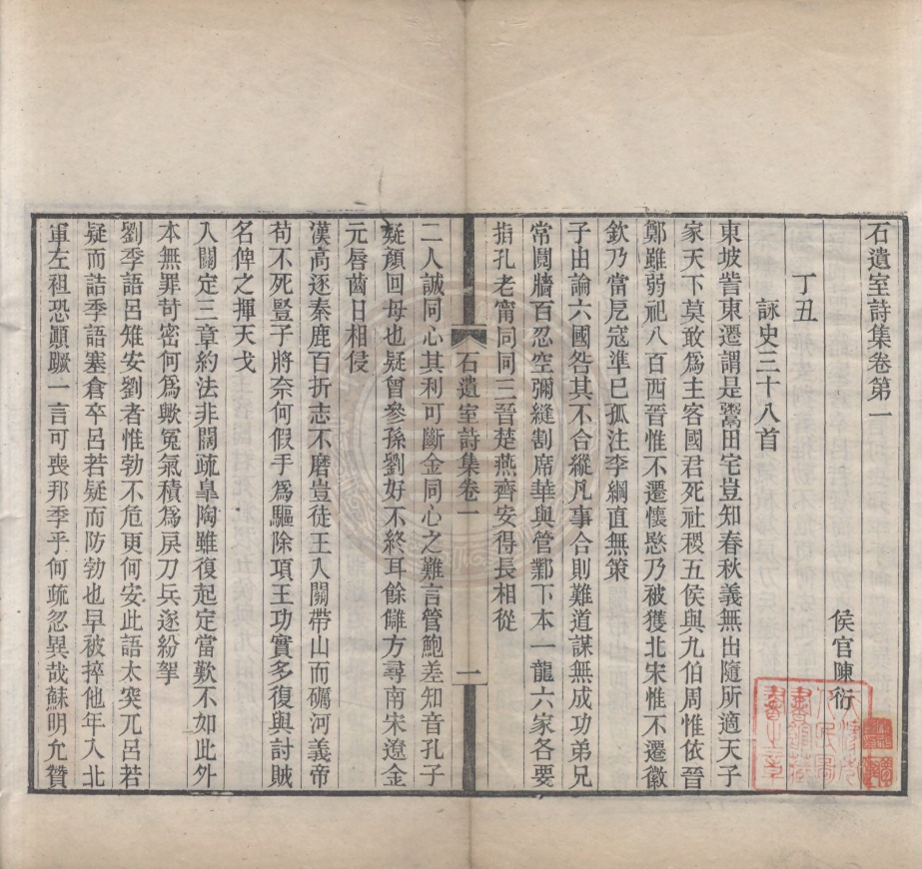 石遺室詩集卷第一
侯官陳衍
丁丑
詠史三十八首
東坡訾東遷謂是鬻田宅豈知春秋義無出隨所適天子
家天下莫敢爲主客國君死社稷五侯與九伯周惟依晉
鄭雖弱祀八百西晉惟不遷懷愍乃被獲北宋惟不遷徽
欽乃當戹寇準已孤注李綱直無策
子由論六國咎其不合縱凡事合則難道謀無成功弟兄
常鬩牆百忍空彌縫割席華與管鄴下本一龍六家各要
指孔老甯同同三晉楚燕齊安得長相從
石遺室詩集卷一
一
二人誠同心其利可斷金同心之難言管鮑差知音孔子
疑顏回母也疑曾參孫劉好不終耳餘讎方尋南宋遼金
元唇齒日相侵
漢高逐秦鹿百折志不磨豈徒王入關帶山而礪河義帝
苟不死豎子將奈何假手爲驅除項王功實多復與討賊
名俾之揮天戈
入關定三章約法非闊疏臯陶雖復起定當歎不如此外
本無罪苛密何爲歟冤氣積爲戾刀兵遂紛挐
劉季語呂雉安劉者惟勃不危更何安此語太突兀呂若
疑而詰季語塞倉卒呂若疑而防勃也早被捽他年入北
軍左袒恐顚蹶一言可喪邦季乎何疏忽異哉蘇明允贊